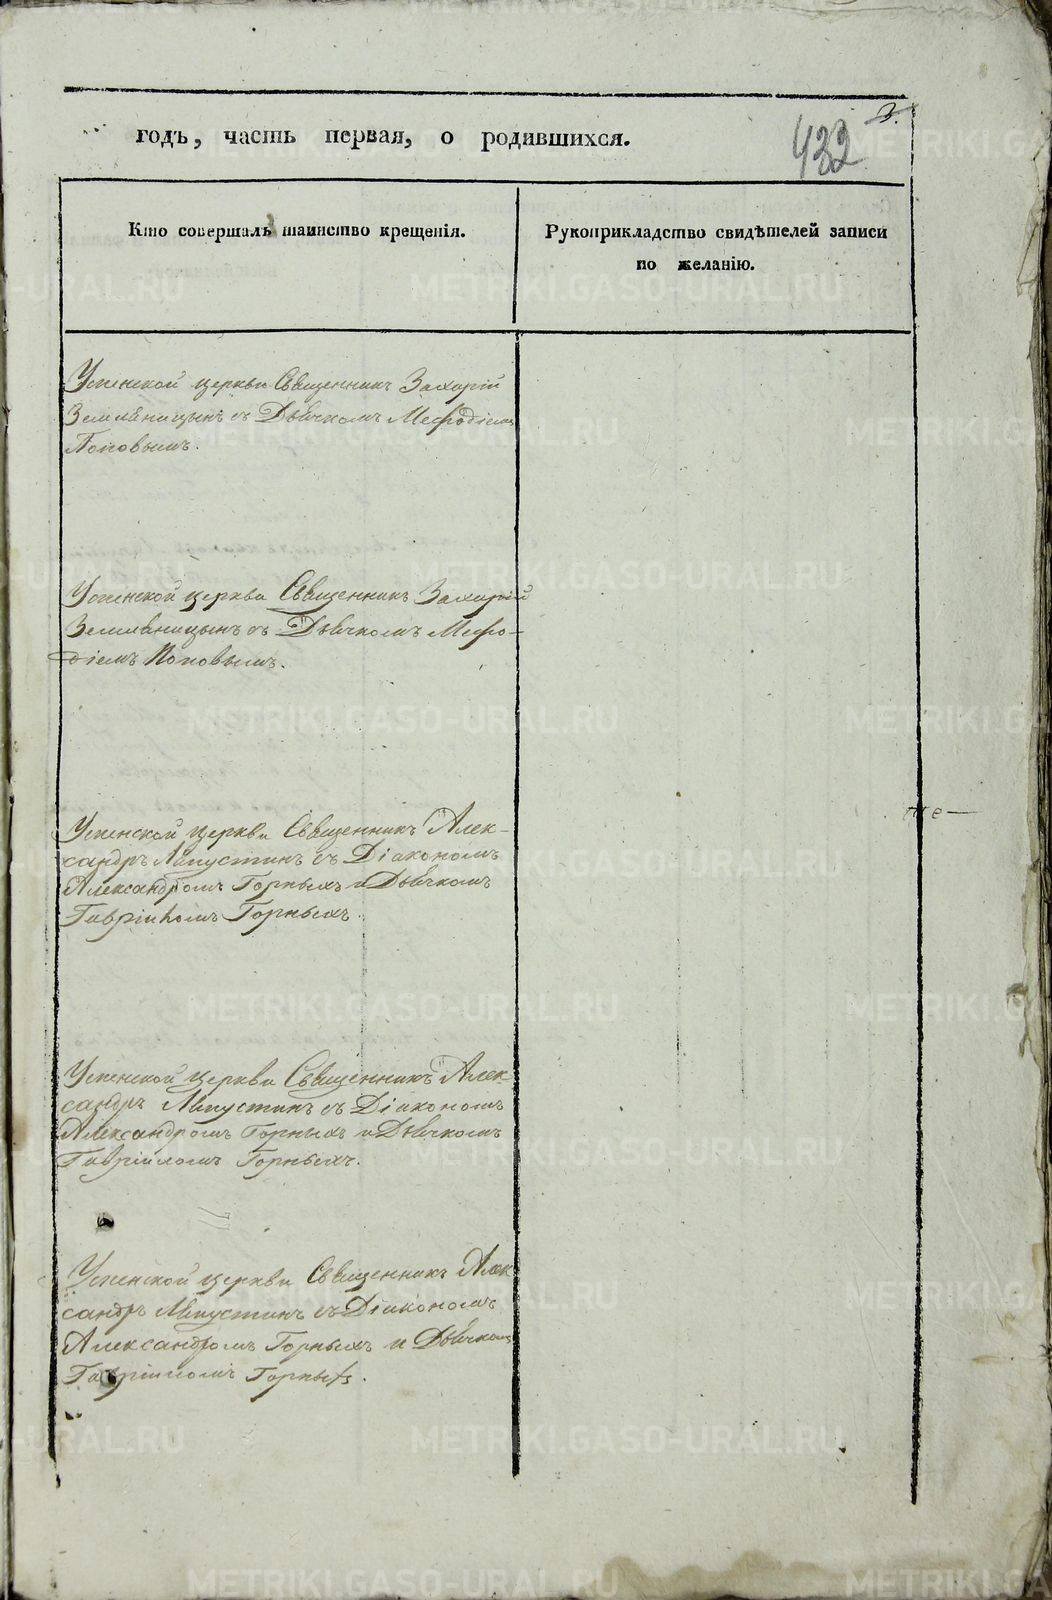 годъ, часть первая, о родившихся.
432
3.
Кто совершалъ таинство крещенія.
Рукоприкладство свидѣтелей записи
по желанію.
Успенской церкви Священникъ Захарій
Земляницынъ съ Дьячкомъ Мефодіемъ
Поповымъ.
Успенской церкви Священникъ Захарій
Земляницынъ съ Дьячкомъ Мефо-
діемъ Поповымъ.
Успенской церкви Священникъ Алек-
сандръ Ляпустинъ съ Діакономъ
Александромъ Горныхъ и Дьячкомъ
Гавріиломъ Горныхъ.
Успенской церкви Священникъ Алек
сандръ Ляпустинъ съ Діакономъ
Александромъ Горныхъ и Дьячкомъ
Гавріиломъ Горныхъ.
Успенской церкви Священникъ Алек
сандръ Ляпустинъ съ Діакономъ
Александромъ Горныхъ и Дьячкомъ
Гавріиломъ Горныхъ.
METRIKI.GASO-URAL.RU